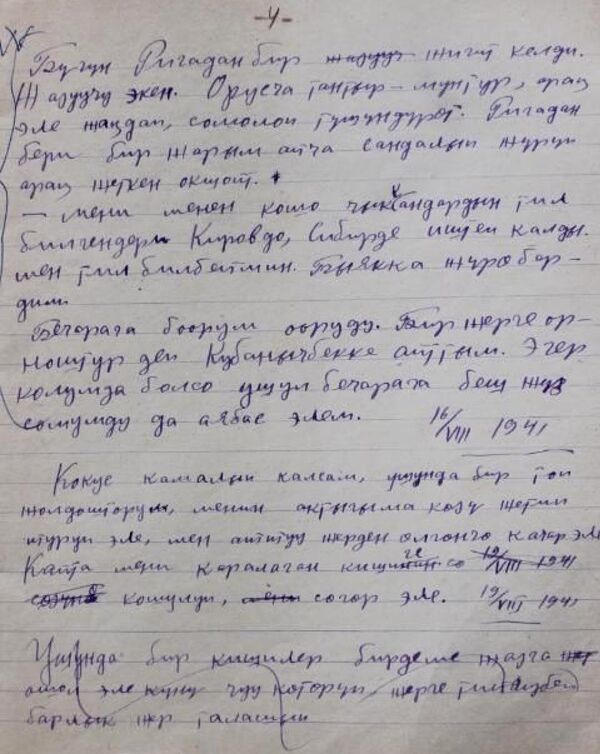 -4-
Бүгүн Ригадан бир жазууч жигит келди.
Жазуучу экен. Орусча тантыр-мунтур, арац
эле жаздап, сомолоп түшүндүрөт. Ригадан
бери бир жарым айча сандалып жүрүп
арац жеткен окшойт.
— мени менен кошо чыккандардын тил
билгендери Кировдо, Сибирде иштеп калды.
мен тил билбеймин. Быякка жүрө бер-
дим.
Бечарага боорум ооруду. Бир жерге ор-
ноштур деп Кубанычбекке айттым. Эгер
колумда болсо ушул бечарага беш жүз
сомумду да аябас элем.
16/VIII 1941
Кокус камалып калсам, ушунда бир топ
жолдошторум, менин актыгыма көзү жетип
туруп эле, мен айтты жерден олгончо качар эле
Кайта мени каралаган кишиге со 19/VIII 1941
кошулуп, мени согор эле. 19/VIII 1941
Ушунда бир кишилер бирдеме жазга
ошол эле күнү чуу которуп жерге тийгизбей
барлык жер талашып